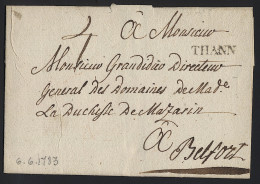 à Monsieur
THANN
Monsieur Grandidier Directeur
General des Domaines de Mad.e
La Duchesse de Mazarin
à
Belfort
6.6.1783